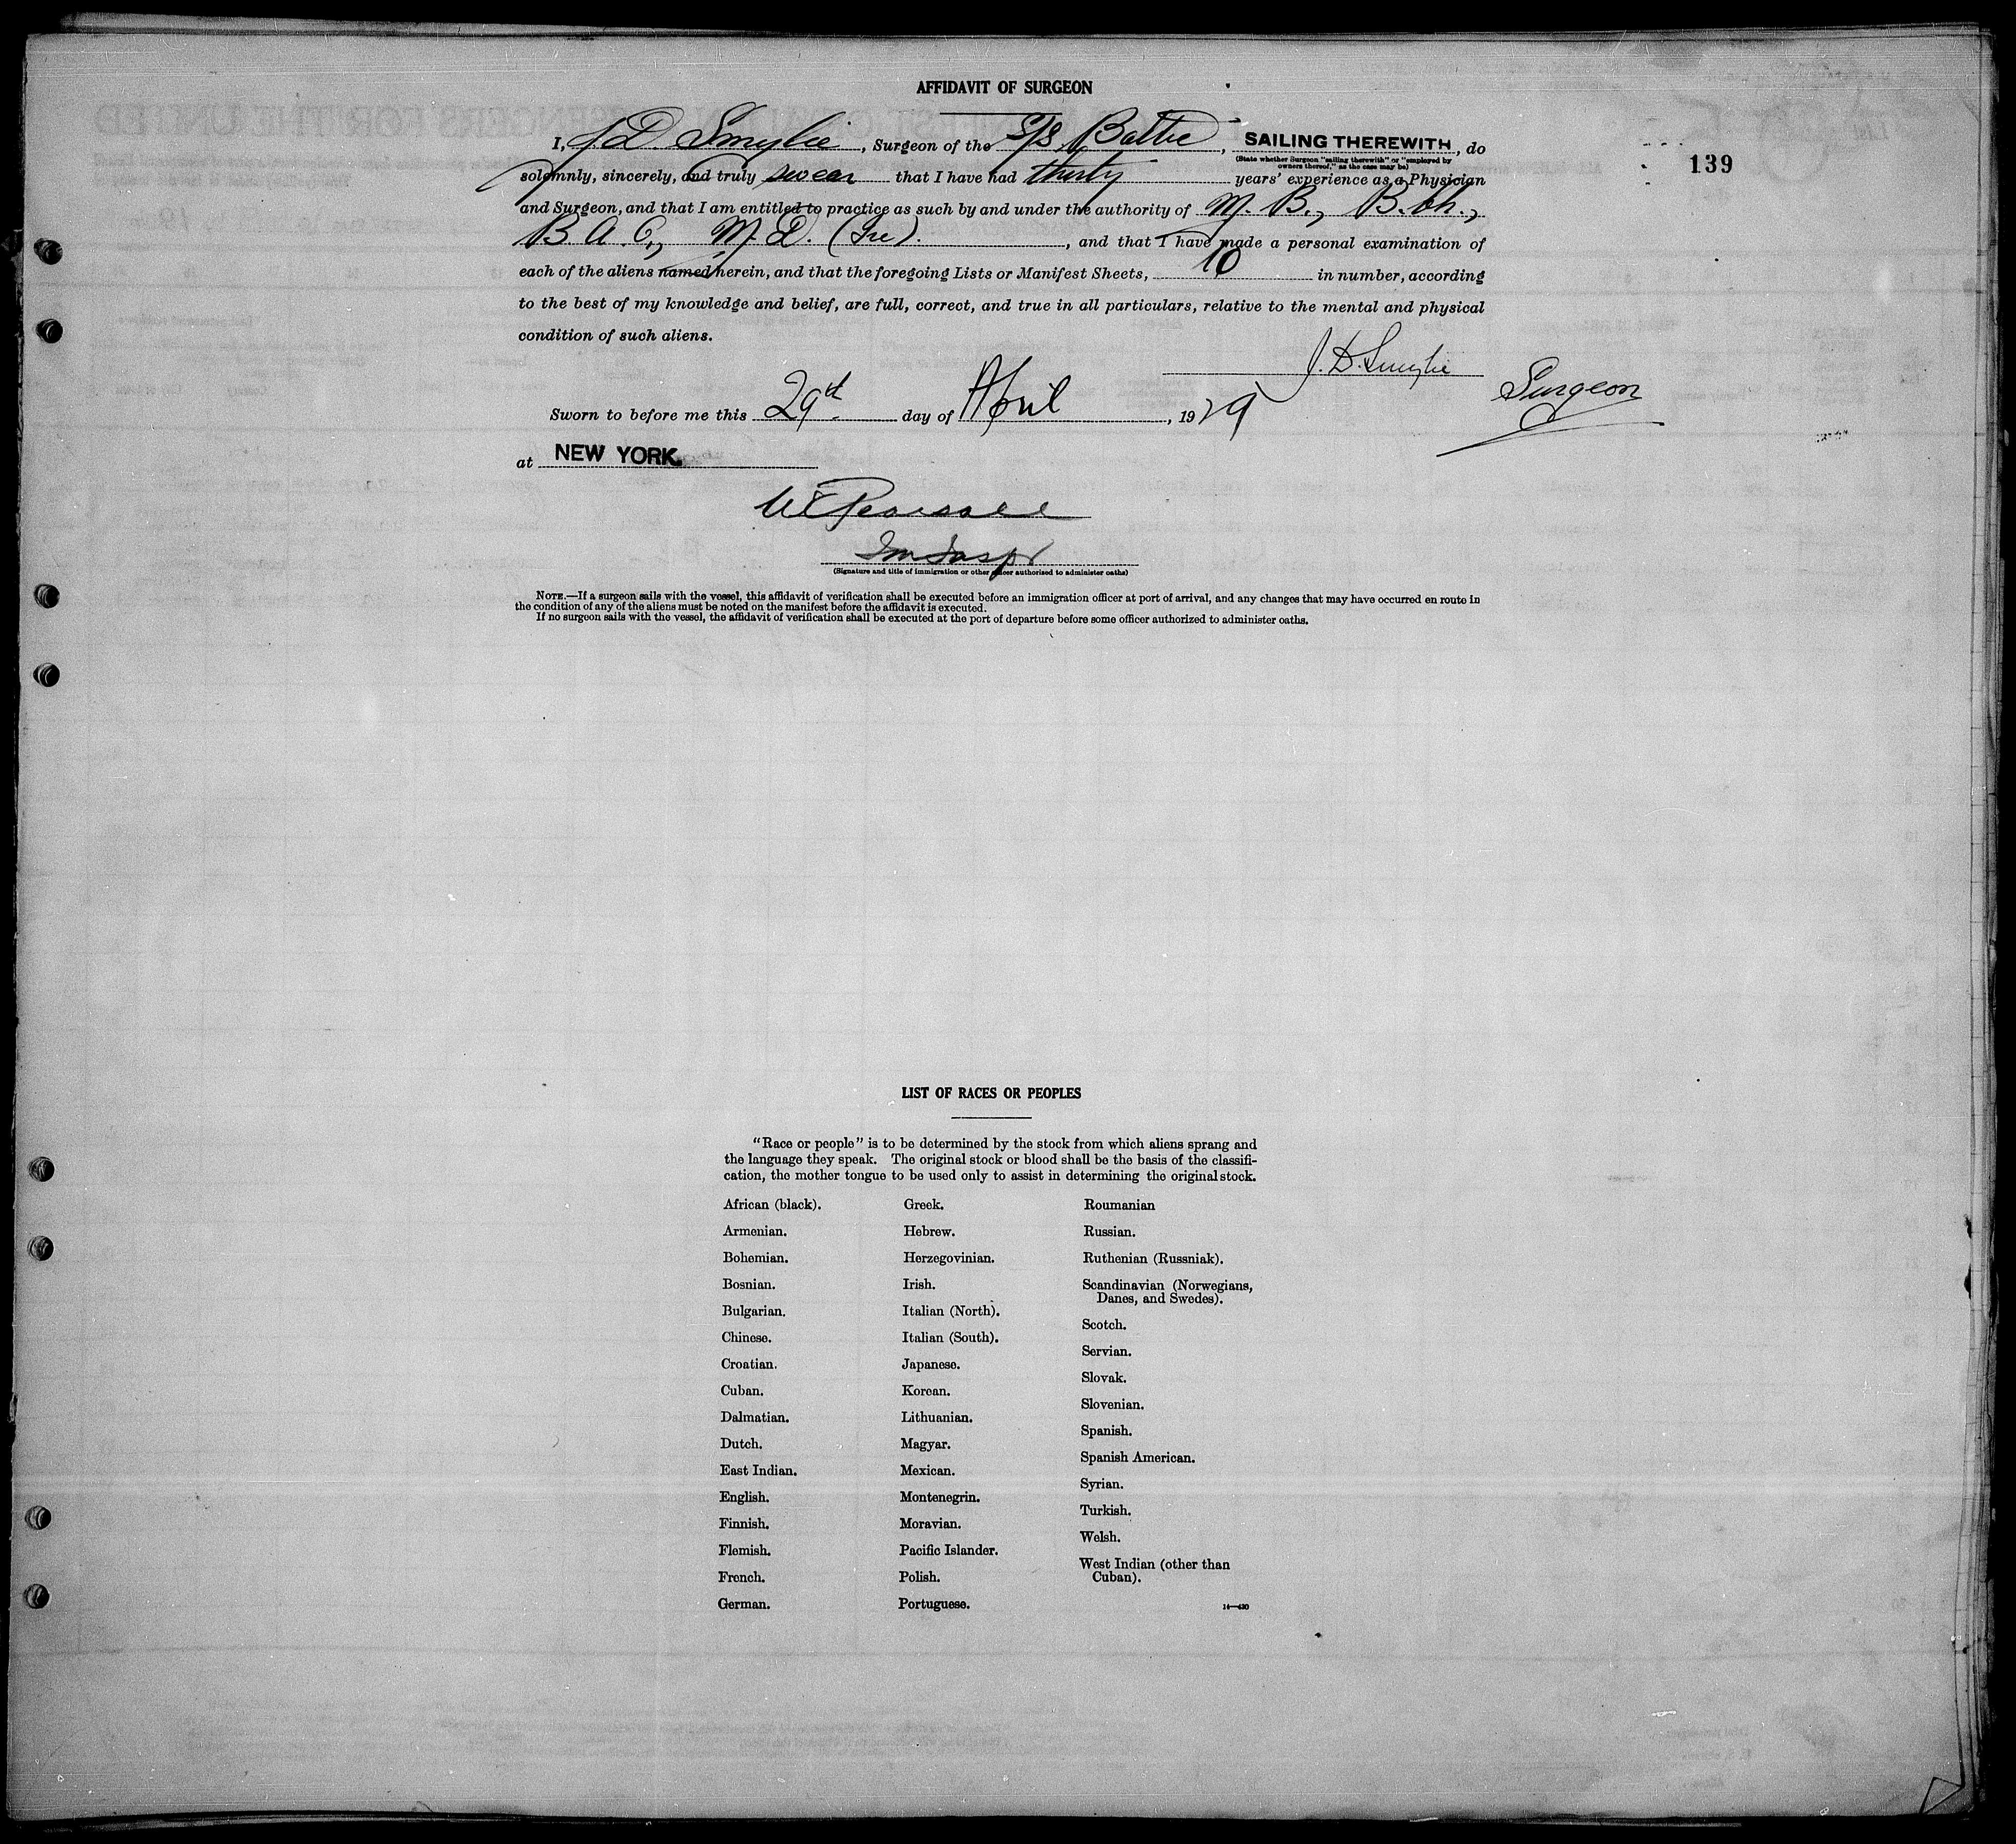 AFFIDAVIT OF SURGEON
I, J D Smylie, Surgeon of the S/S Baltic, SAILING THEREWITH, do
(State whether Surgeon "sailing therewith" or "employed by
owners thereof," as the case may be)
139
solemnly, sincerely, and truly swear that I have had thirty years' experience as a Physician
and Surgeon, and that I am entitled to practice as such by and under the authority of M. B., B. Ch.,
B. A. O., M. D. (Ire)., and that I have made a personal examination of
each of the aliens named herein, and that the foregoing Lists or Manifest Sheets, 10 in number, according
to the best of my knowledge and belief, are full, correct, and true in all particulars, relative to the mental and physical
condition of such aliens.
J. D. Smylie
Surgeon
Sworn to before me this 29th day of April, 1929
at NEW YORK.
Im Inspr
(Signature and title of immigration or other officer authorized to administer oaths)
NOTE.—If a surgeon sails with the vessel, this affidavit of verification shall be executed before an immigration officer at port of arrival, and any changes that may have occurred en route in
the condition of any of the aliens must be noted on the manifest before the affidavit is executed.
If no surgeon sails with the vessel, the affidavit of verification shall be executed at the port of departure before some officer authorized to administer oaths.
LIST OF RACES OR PEOPLES
"Race or people" is to be determined by the stock from which aliens sprang and
the language they speak. The original stock or blood shall be the basis of the classifi-
cation, the mother tongue to be used only to assist in determining the original stock.
African (black).
Armenian.
Bohemian.
Bosnian.
Bulgarian.
Chinese.
Croatian.
Cuban.
Dalmatian.
Dutch.
East Indian.
English.
Finnish.
Flemish.
French.
German.
Greek.
Hebrew.
Herzegovinian.
Irish.
Italian (North).
Italian (South).
Japanese.
Korean.
Lithuanian.
Magyar.
Mexican.
Montenegrin.
Moravian.
Pacific Islander.
Polish.
Portuguese.
Roumanian
Russian.
Ruthenian (Russniak).
Scandinavian (Norwegians,
Danes, and Swedes).
Scotch.
Servian.
Slovak.
Slovenian.
Spanish.
Spanish American.
Syrian.
Turkish.
Welsh.
West Indian (other than
Cuban).
14—430